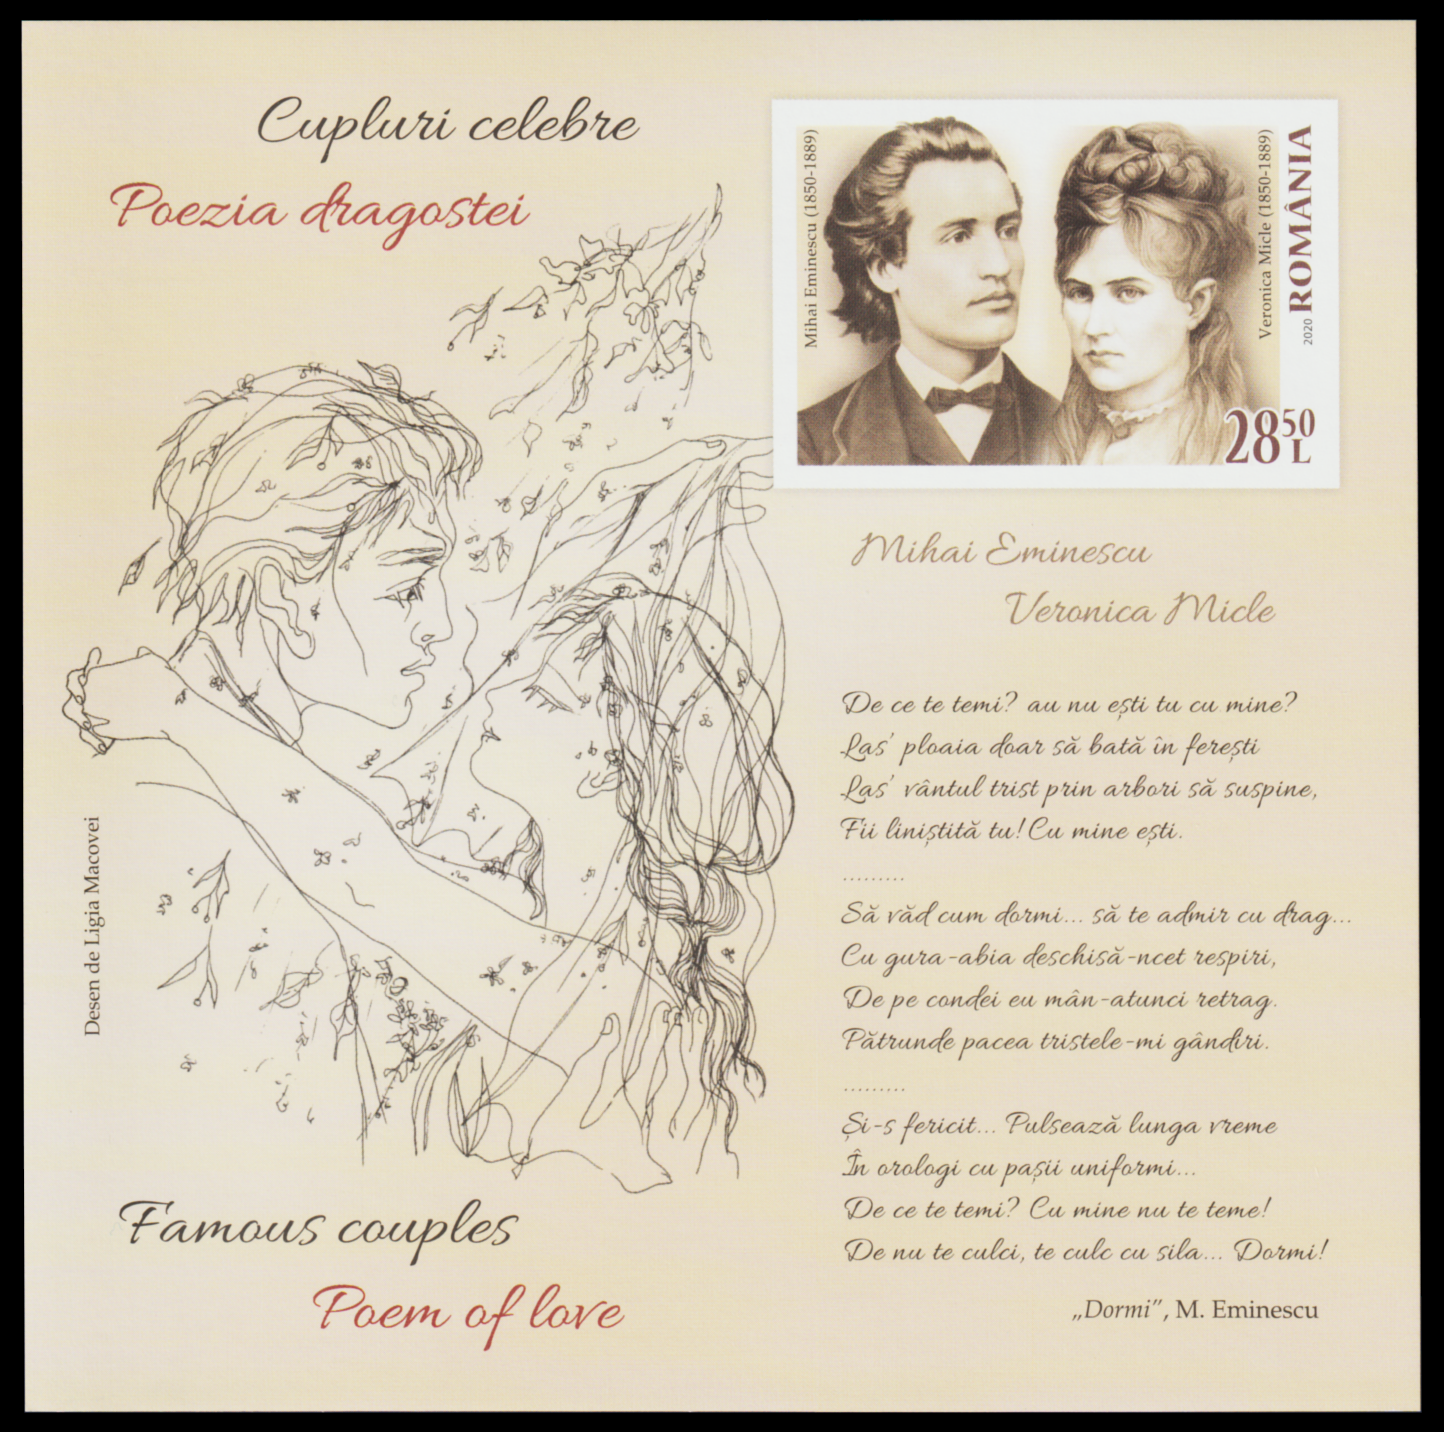 Cupluri celebre
Poezia dragostei
Mihai Eminescu (1850-1889)
Veronica Micle (1850-1889)
2020 ROMÂNIA
28 50 L
Mihai Eminescu
Veronica Micle
De ce te temi? au nu ești tu cu mine?
Las' ploaia doar să bată în ferești
Las' vântul trist prin arbori să suspine,
Fii liniștită tu! Cu mine ești.
.........
Să văd cum dormi... să te admir cu drag...
Cu gura-abia deschisă-ncet respiri,
De pe condei eu mân-atunci retrag.
Pătrunde pacea tristele-mi gândiri.
.........
Și-s fericit... Pulsează lunga vreme
În orologi cu pașii uniformi...
De ce te temi? Cu mine nu te teme!
De nu te culci, te culc cu sila... Dormi!
„Dormi”, M. Eminescu
Desen de Ligia Macovei
Famous couples
Poem of love